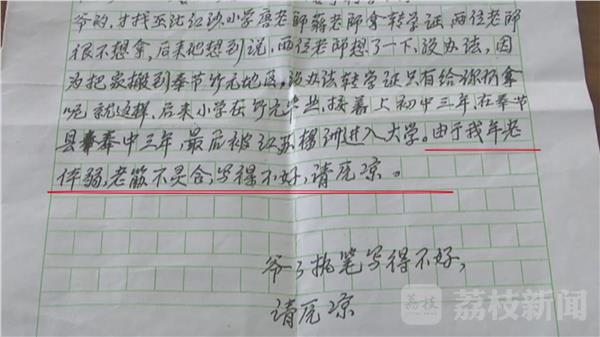 爷的,才找巫北红沙小学唐老师蒋老师拿转学证,两位老师
很不想拿,后来他想到说,两位老师想了一下,没办法,因
为把家搬到奉节竹元地区,没办法转学证只有给你们拿
呢,就这样,后来小学在竹元毕业,接着上初中三年,在奉节
县奉中三年,最后被江苏扬州进入大学。由于我年老
体弱,老筋不灵合,写得不好,请厡凉。
爷爷执笔写得不好,
请厡凉
荔枝 荔枝新闻